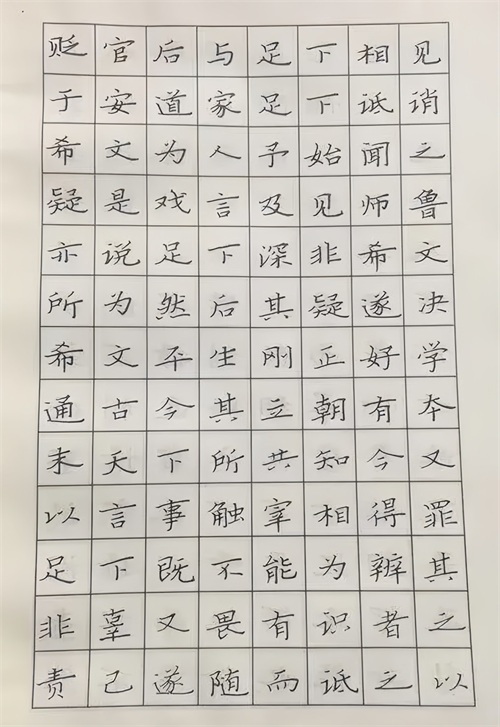 贬官后与足下相见
于安道家足下诋诮
希文为人予始闻之
疑是戏言及见师鲁
亦说足下深非希文
所为然后其疑遂决
希文平生刚正好学
通古今其立朝有本
末天下所共知今又
以言事触宰相得罪
足下既不能为辨其
非辜又畏有识者之
责己遂随而诋之以